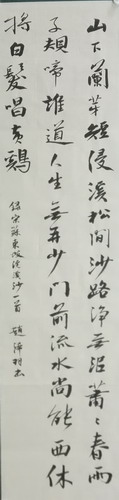 山下蘭芽短浸溪松間沙路淨無泥蕭蕭春雨
子規啼誰道人生無再少門前流水尚能西休
將白髮唱黃鷄
錄宋蘇東坡浣溪沙一首